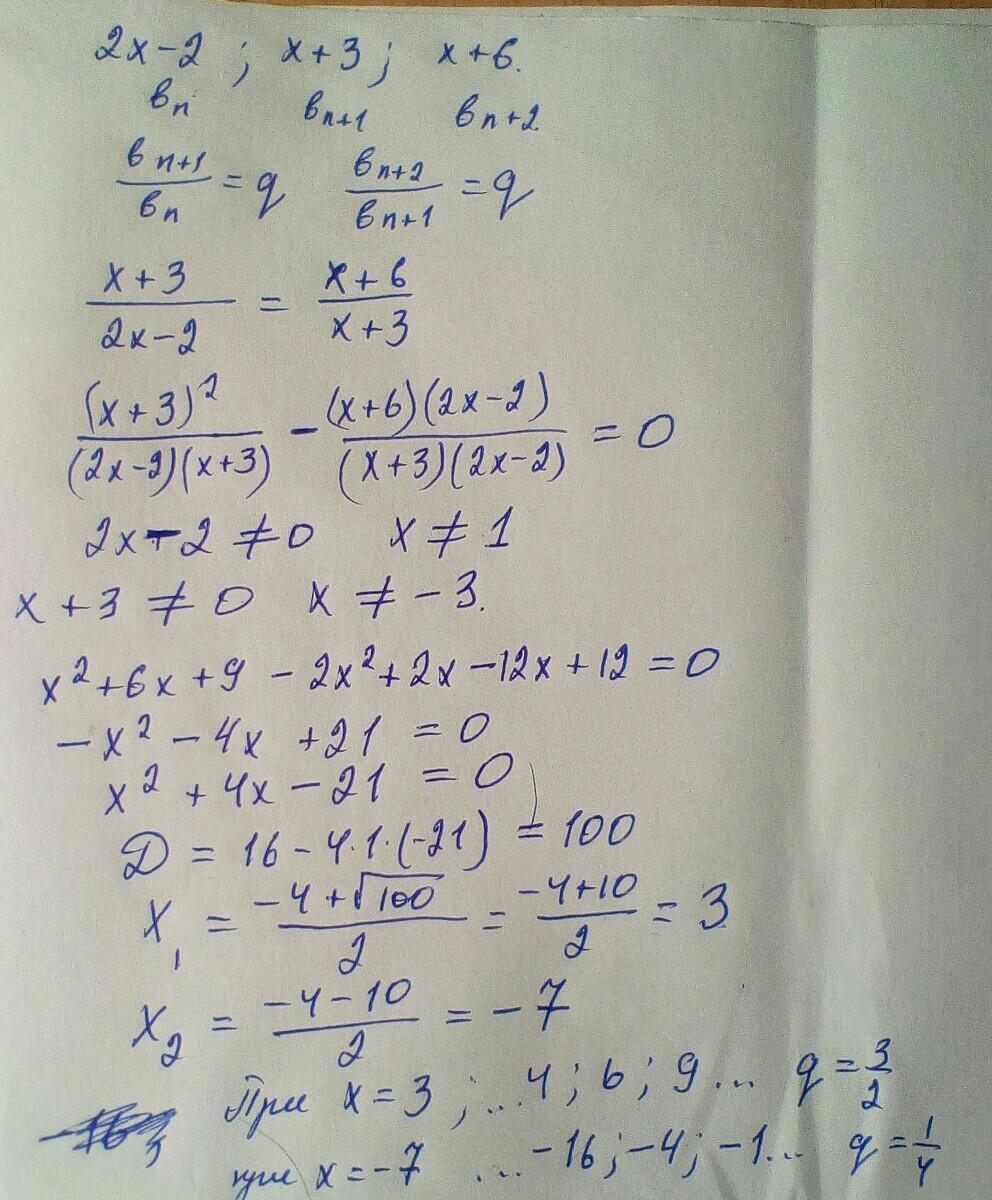 2x-2 ; x+3 ; x+6.
вn вn+1 вn+2.
вn+1/вn = q вn+2/вn+1 = q
(x+3)/(2x-2) = (x+6)/(x+3)
(x+3)²/((2x-2)(x+3)) - (x+6)(2x-2)/((x+3)(2x-2)) = 0
2x-2 ≠ 0 x ≠ 1
x+3 ≠ 0 x ≠ -3.
x²+6x+9-2x²+2x-12x+12=0
-x²-4x+21=0
x²+4x-21=0
D = 16-4·1·(-21) = 100
x₁ = (-4+√100)/2 = (-4+10)/2 = 3
x₂ = (-4-10)/2 = -7
При x=3 ; ...4; 6; 9... q=3/2
при x=-7 ...-16; -4; -1... q=1/4